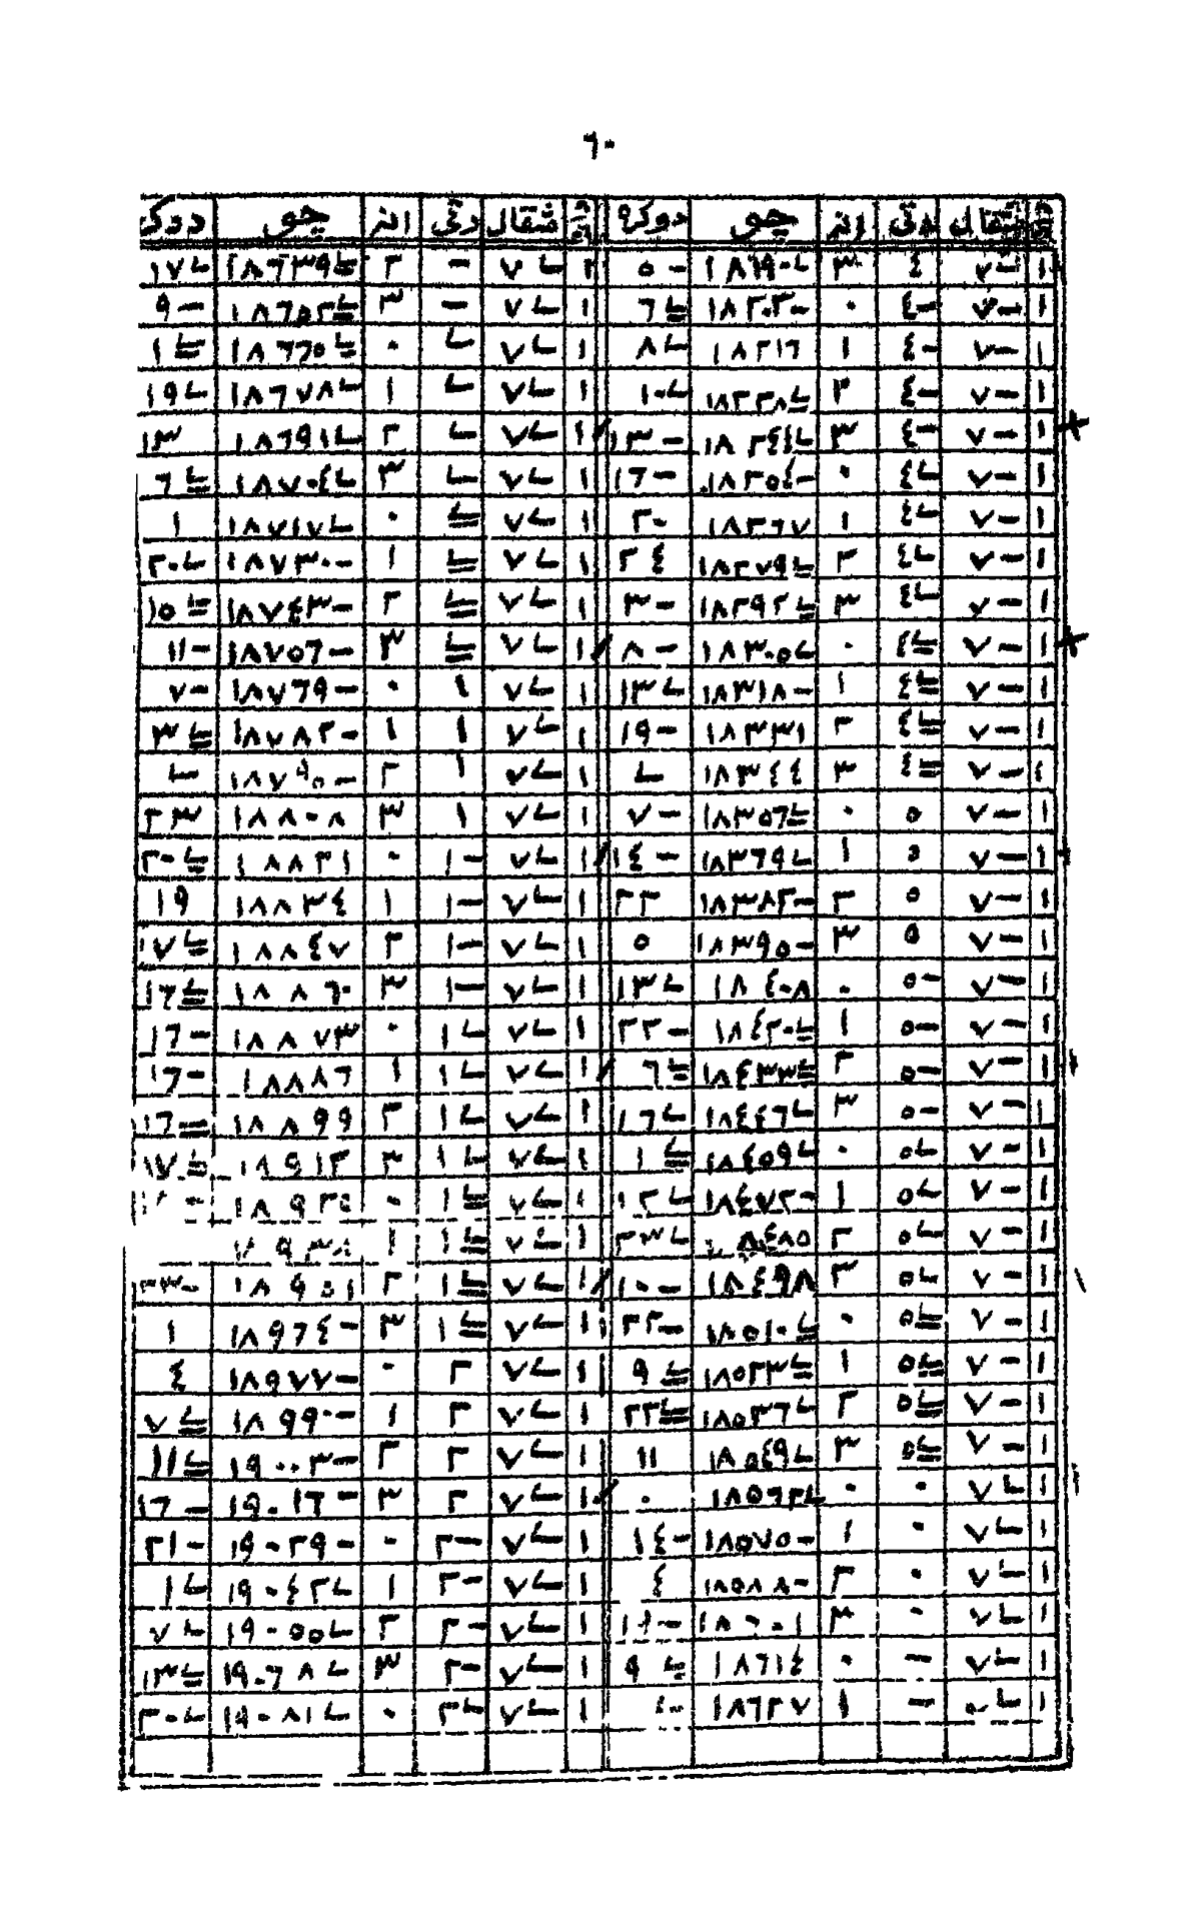 ٦٠
مثقال دقي انه چو دوكره مثقال دقي انه چو دوكره
١ ٧ ٤ ٣ ١٨١٩٠ ٥ ١ ٧ - ٢ ١٨٦٣٩ ١٧
١ ٧- ٤- ٠ ١٨٢٠٣- ٦ ١ ٧ - ٣ ١٨٦٥٢ ٩-
١ ٧- ٤- ١ ١٨٢١٦ ٨ ١ ٧ ٠ ١٨٦٦٥ ١
١ ٧- ٤- ٢ ١٨٢٢٨ ١٠ ١ ٧ ١ ١٨٦٧٨ ١٩
١ ٧- ٤- ٣ ١٨٢٤١ ١٣- ١ ٧ ٢ ١٨٦٩١ ١٣
١ ٧- ٤ ٠ ١٨٢٥٤- ١٦- ١ ٧ ٣ ١٨٧٠٤ ٦
١ ٧- ٤ ١ ١٨٢٦٧ ٢٠ ١ ٧ ٠ ١٨٧١٧ ١
١ ٧- ٤ ٢ ١٨٢٧٩ ٢٤ ١ ٧ ١ ١٨٧٣٠- ٢٠
١ ٧- ٤ ٣ ١٨٢٩٢ ٣- ١ ٧ ٢ ١٨٧٤٣- ١٥
١ ٧- ٤ ٠ ١٨٣٠٥ ٨- ١ ٧ ٣ ١٨٧٥٦- ١١-
١ ٧- ٤ ١ ١٨٣١٨- ١٣ ١ ٧ ١ ٠ ١٨٧٦٩- ٧-
١ ٧- ٤ ٢ ١٨٣٣١ ١٩- ١ ٧ ١ ١ ١٨٧٨٢- ٣
١ ٧- ٤ ٣ ١٨٣٤٤ ١ ٧ ١ ٢ ١٨٧٩٥-
١ ٧- ٥ ٠ ١٨٣٥٦ ٧- ١ ٧ ١ ٣ ١٨٨٠٨ ٢٣
١ ٧- ٥ ١ ١٨٣٦٩ ١٤- ١ ٧ ١- ٠ ١٨٨٢١ ٢٠
١ ٧- ٥ ٢ ١٨٣٨٢- ٢٢ ١ ٧ ١- ١ ١٨٨٣٤ ١٩
١ ٧- ٥ ٣ ١٨٣٩٥- ٥ ١ ٧ ١- ٢ ١٨٨٤٧ ١٧
١ ٧- ٥- ٠ ١٨٤٠٨ ١٣ ١ ٧ ١- ٣ ١٨٨٦٠
١ ٧- ٥- ١ ١٨٤٢٠ ٢٢- ١ ٧ ١ ٠ ١٨٨٧٣ ١٦-
١ ٧- ٥- ٢ ١٨٤٣٣ ٦ ١ ٧ ١ ١ ١٨٨٨٦ ١٦-
١ ٧- ٥- ٣ ١٨٤٤٦ ١٦ ١ ٧ ١ ٢ ١٨٨٩٩ ١٦
١ ٧- ٥ ٠ ١٨٤٥٩ ١ ١ ٧ ١ ٣ ١٨٩١٢ ١٧
١ ٧- ٥ ١ ١٨٤٧٢- ١٢ ١ ٧ ١ ٠ ١٨٩٢٥
١ ٧- ٥ ٢ ١٨٤٨٥ ٢٣ ١ ٧ ١ ١ ١٨٩٣٨
١ ٧- ٥ ٣ ١٨٤٩٨ ١٠- ١ ٧ ١ ٢ ١٨٩٥١
١ ٧- ٥ ٠ ١٨٥١٠ ٢٢- ١ ٧ ١ ٣ ١٨٩٦٤- ١
١ ٧- ٥ ١ ١٨٥٢٣ ٩ ١ ٧ ٢ ٠ ١٨٩٧٧- ٤
١ ٧- ٥ ٢ ١٨٥٣٦ ٢٢ ١ ٧ ٢ ١ ١٨٩٩٠- ٧
١ ٧- ٥ ٣ ١٨٥٤٩ ١١ ١ ٧ ٢ ٢ ١٩٠٠٣- ١١
١ ٧ ٠ ٠ ١٨٥٦٢ ٠ ١ ٧ ٢ ٣ ١٩٠١٦- ١٦-
١ ٧ ٠ ١ ١٨٥٧٥- ١٤- ١ ٧ ٢- ٠ ١٩٠٢٩- ٢١-
١ ٧ ٠ ٢ ١٨٥٨٨- ٤ ١ ٧ ٢- ١ ١٩٠٤٢ ١
١ ٧ ٠ ٣ ١٨٦٠١ ١ ٧ ٢- ٢ ١٩٠٥٥ ٧
١ ٧ - ٠ ١٨٦١٤ ٩ ١ ٧ ٢- ٣ ١٩٠٦٨ ١٣
١ - ١ ١٨٦٢٧ ١ ٧ ٢ ٠ ١٩٠٨١ ٢٠